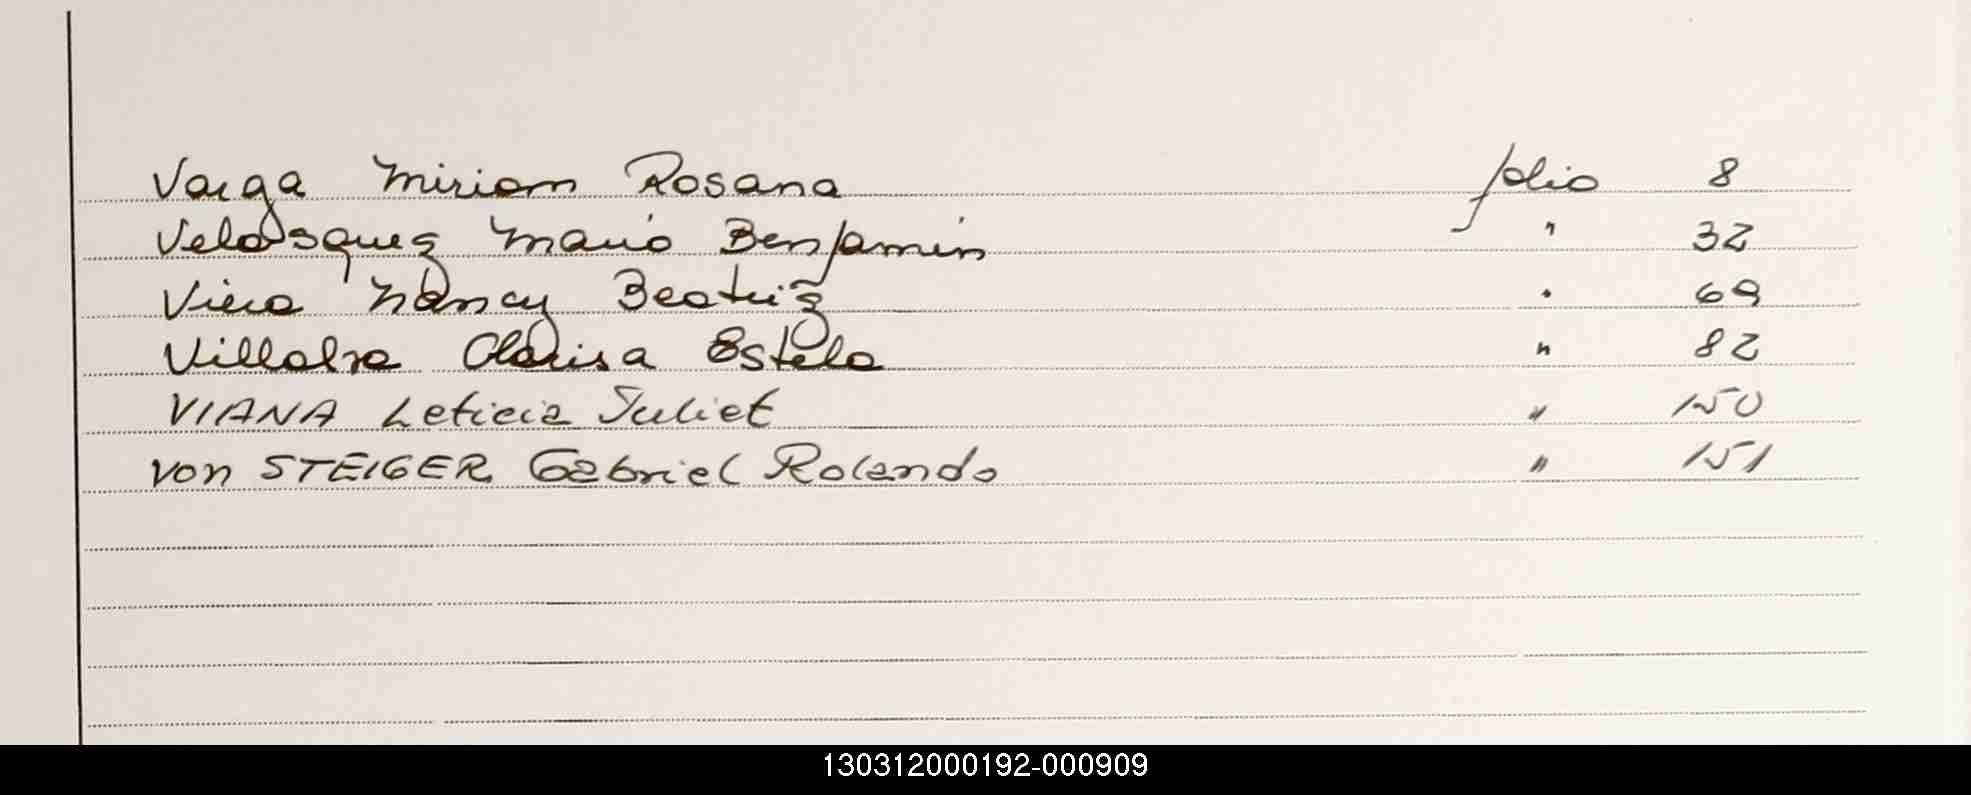 Varga Miriam Rosana folio 8
Velasquez Mario Benjamin " 32
Viera Nancy Beatriz " 69
Villalva Clarisa Estela " 82
VIANA Leticia Juliet " 150
von STEIGER Gabriel Rolando " 151
130312000192-000909